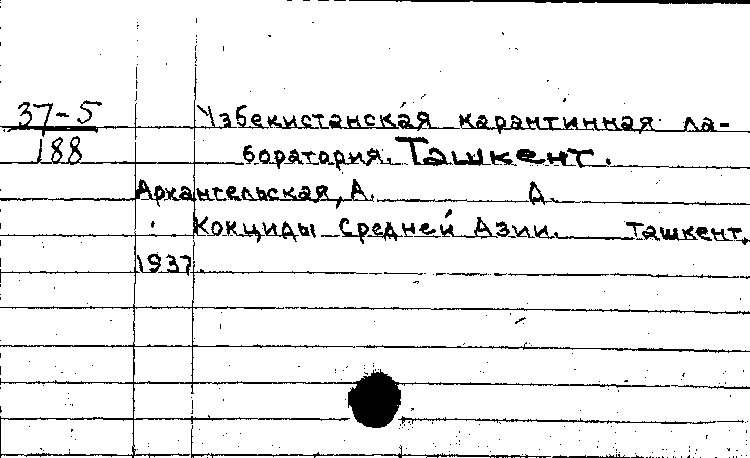 37-5 Узбекистанская карантинная ла-
188 боратория. Ташкент.
Архангельская, А. А.
Кокциды Средней Азии. Ташкент,
1937.